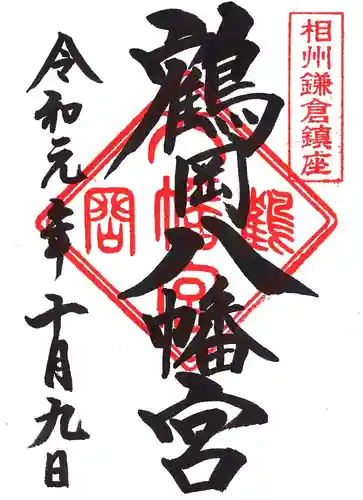 相州鎌倉鎮座
鶴岡八幡宮
令和元年十月九日